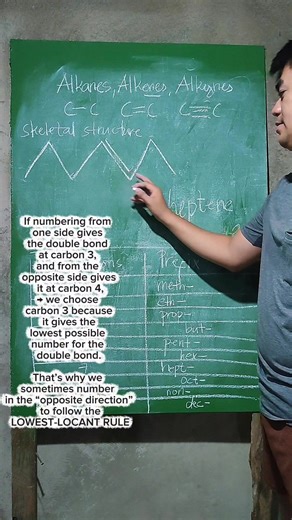 Alkanes, Alkenes, Alkynes
C-C C=C C≡C
Skeletal structure
heptene
If numbering from
one side gives
the double bond
at carbon 3,
and from the
opposite side gives
it at carbon 4,
→ we choose
carbon 3 because
it gives the
lowest possible
number for the
double bond.
That's why we
sometimes number
in the "opposite direction"
to follow the
LOWEST-LOCANT RULE
meth-
eth-
prop-
but-
pent-
hex-
hept-
oct-
non-
dec-